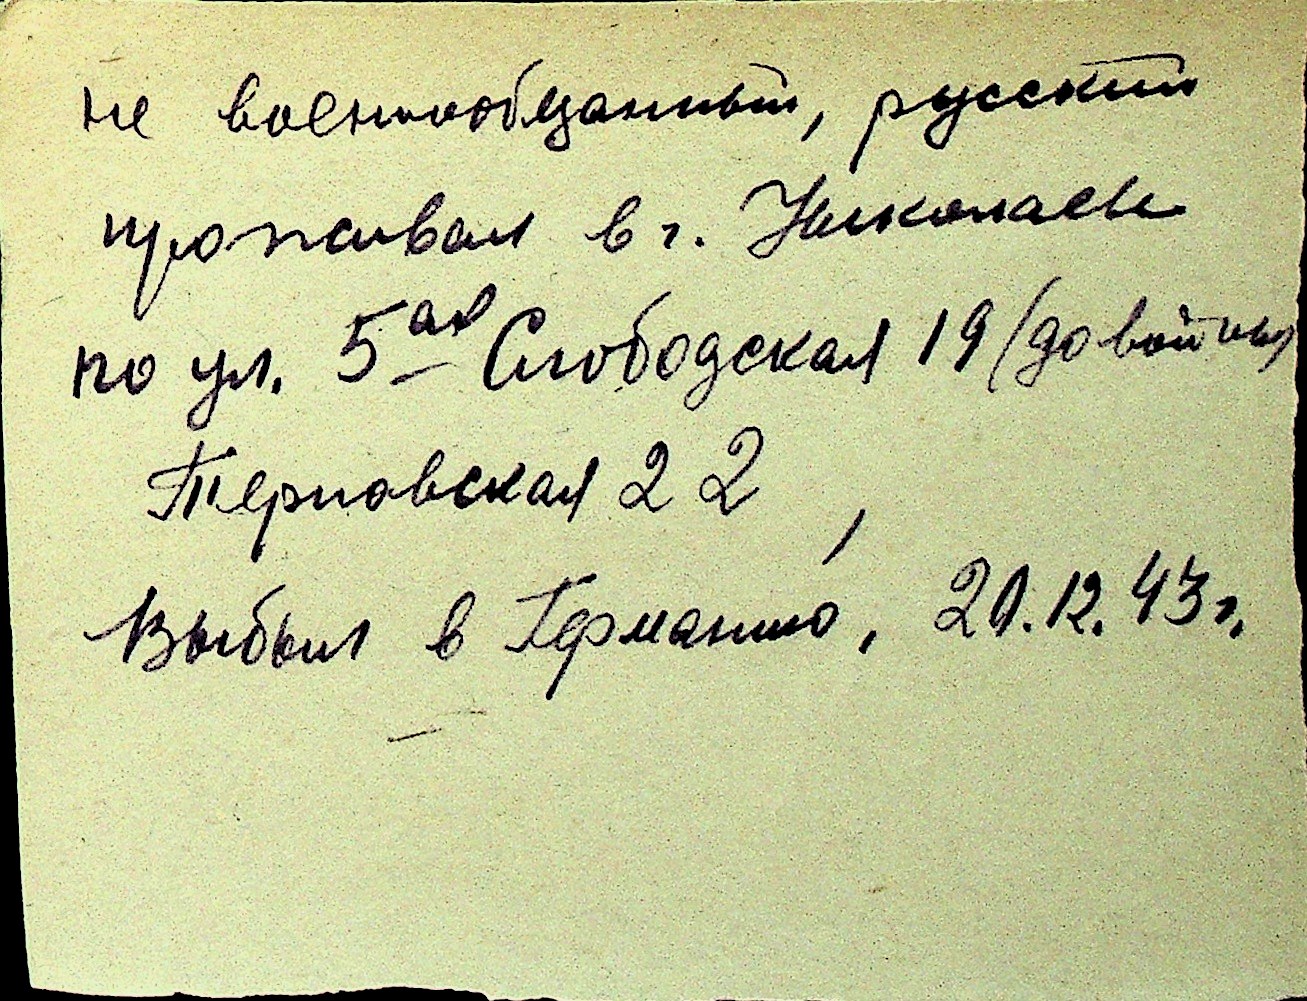 не военнообязанный, русский
проживал в г. Николаеве
по ул. 5ая Слободская 19 (до войны)
Терновская 22
Выбыл в Германию, 21.12.43 г.